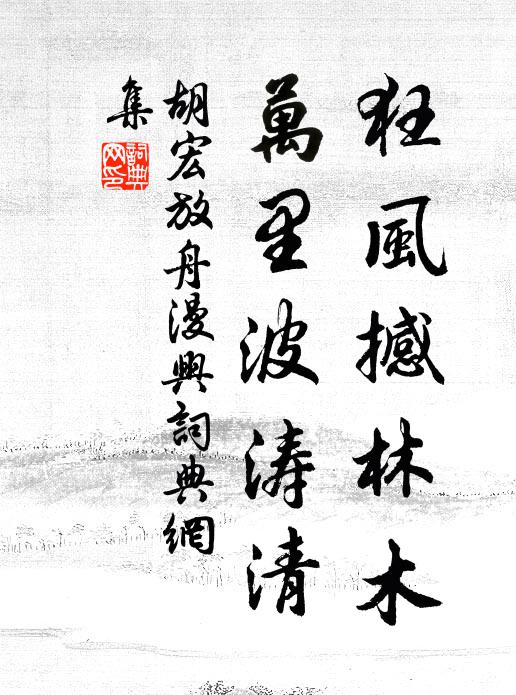 狂風撼林木
萬里波涛清
胡宏放舟漫興詞典網
集
詞典
网印